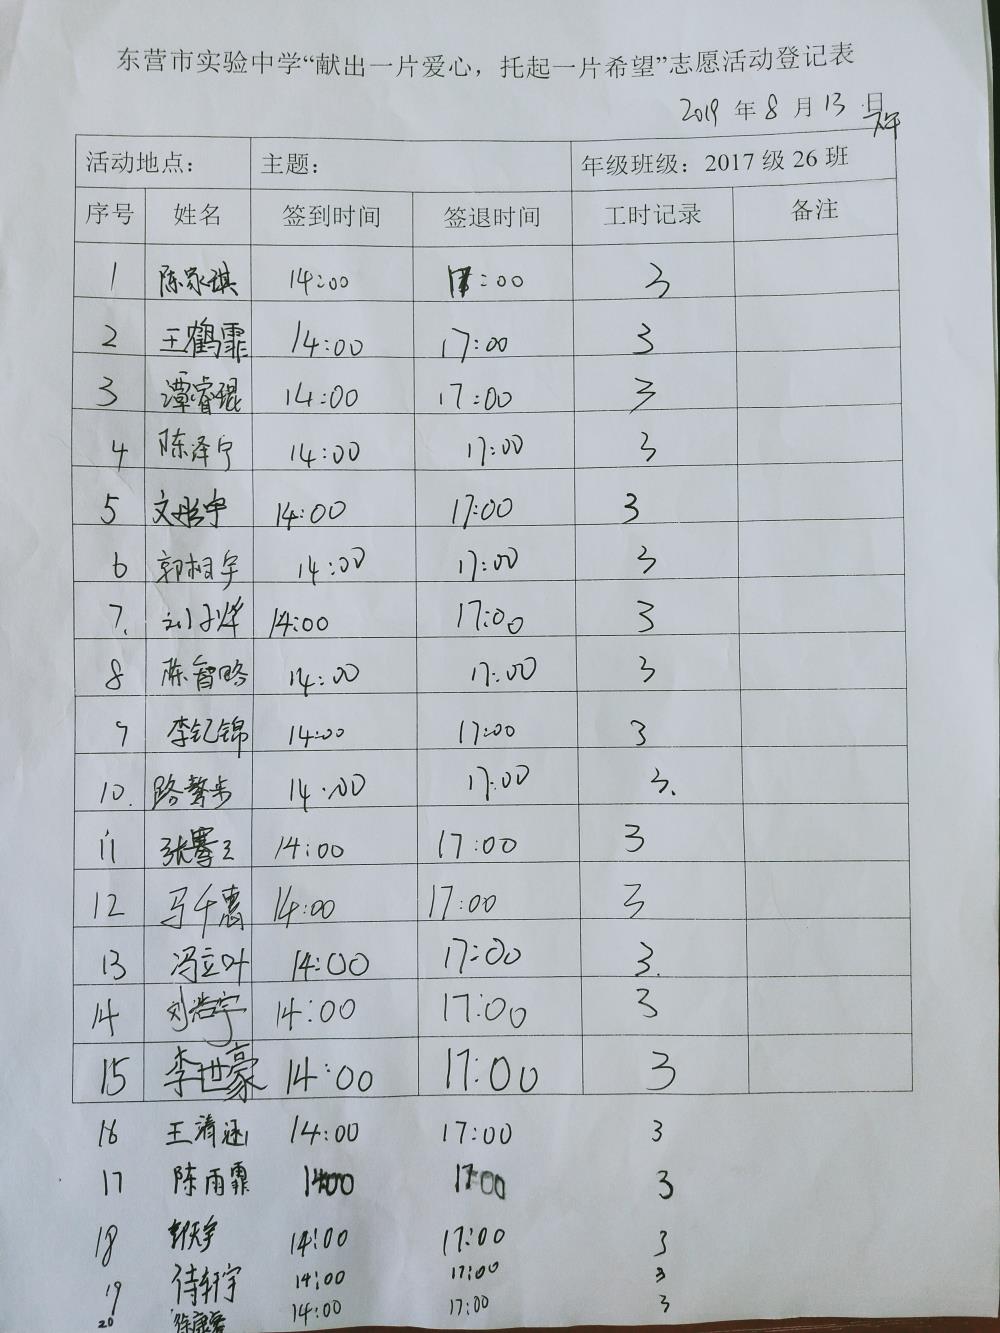 东营市实验中学“献出一片爱心，托起一片希望”志愿活动登记表
2019 年 8 月 13 日
下午
活动地点： 主题： 年级班级：2017 级 26 班
序号 姓名 签到时间 签退时间 工时记录 备注
1 陈家琪 14:00 17:00 3
2 王鹤霏 14:00 17:00 3
3 谭睿琨 14:00 17:00 3
4 陈泽宁 14:00 17:00 3
5 文彤宇 14:00 17:00 3
6 郭相宇 14:00 17:00 3
7. 刘子烨 14:00 17:00 3
8 陈智略 14:00 17:00 3
9 李钇锦 14:00 17:00 3
10. 路 14:00 17:00 3.
11 张 14:00 17:00 3
12 马千惠 14:00 17:00 3
13 冯立叶 14:00 17:00 3.
14 刘浩宇 14:00 17:00 3
15 李世豪 14:00 17:00 3
16 王清涵 14:00 17:00 3
17 陈雨霏 14:00 17:00 3
18 14:00 17:00 3
19 轩宇 14:00 17:00 3
20 徐康 14:00 17:00 3